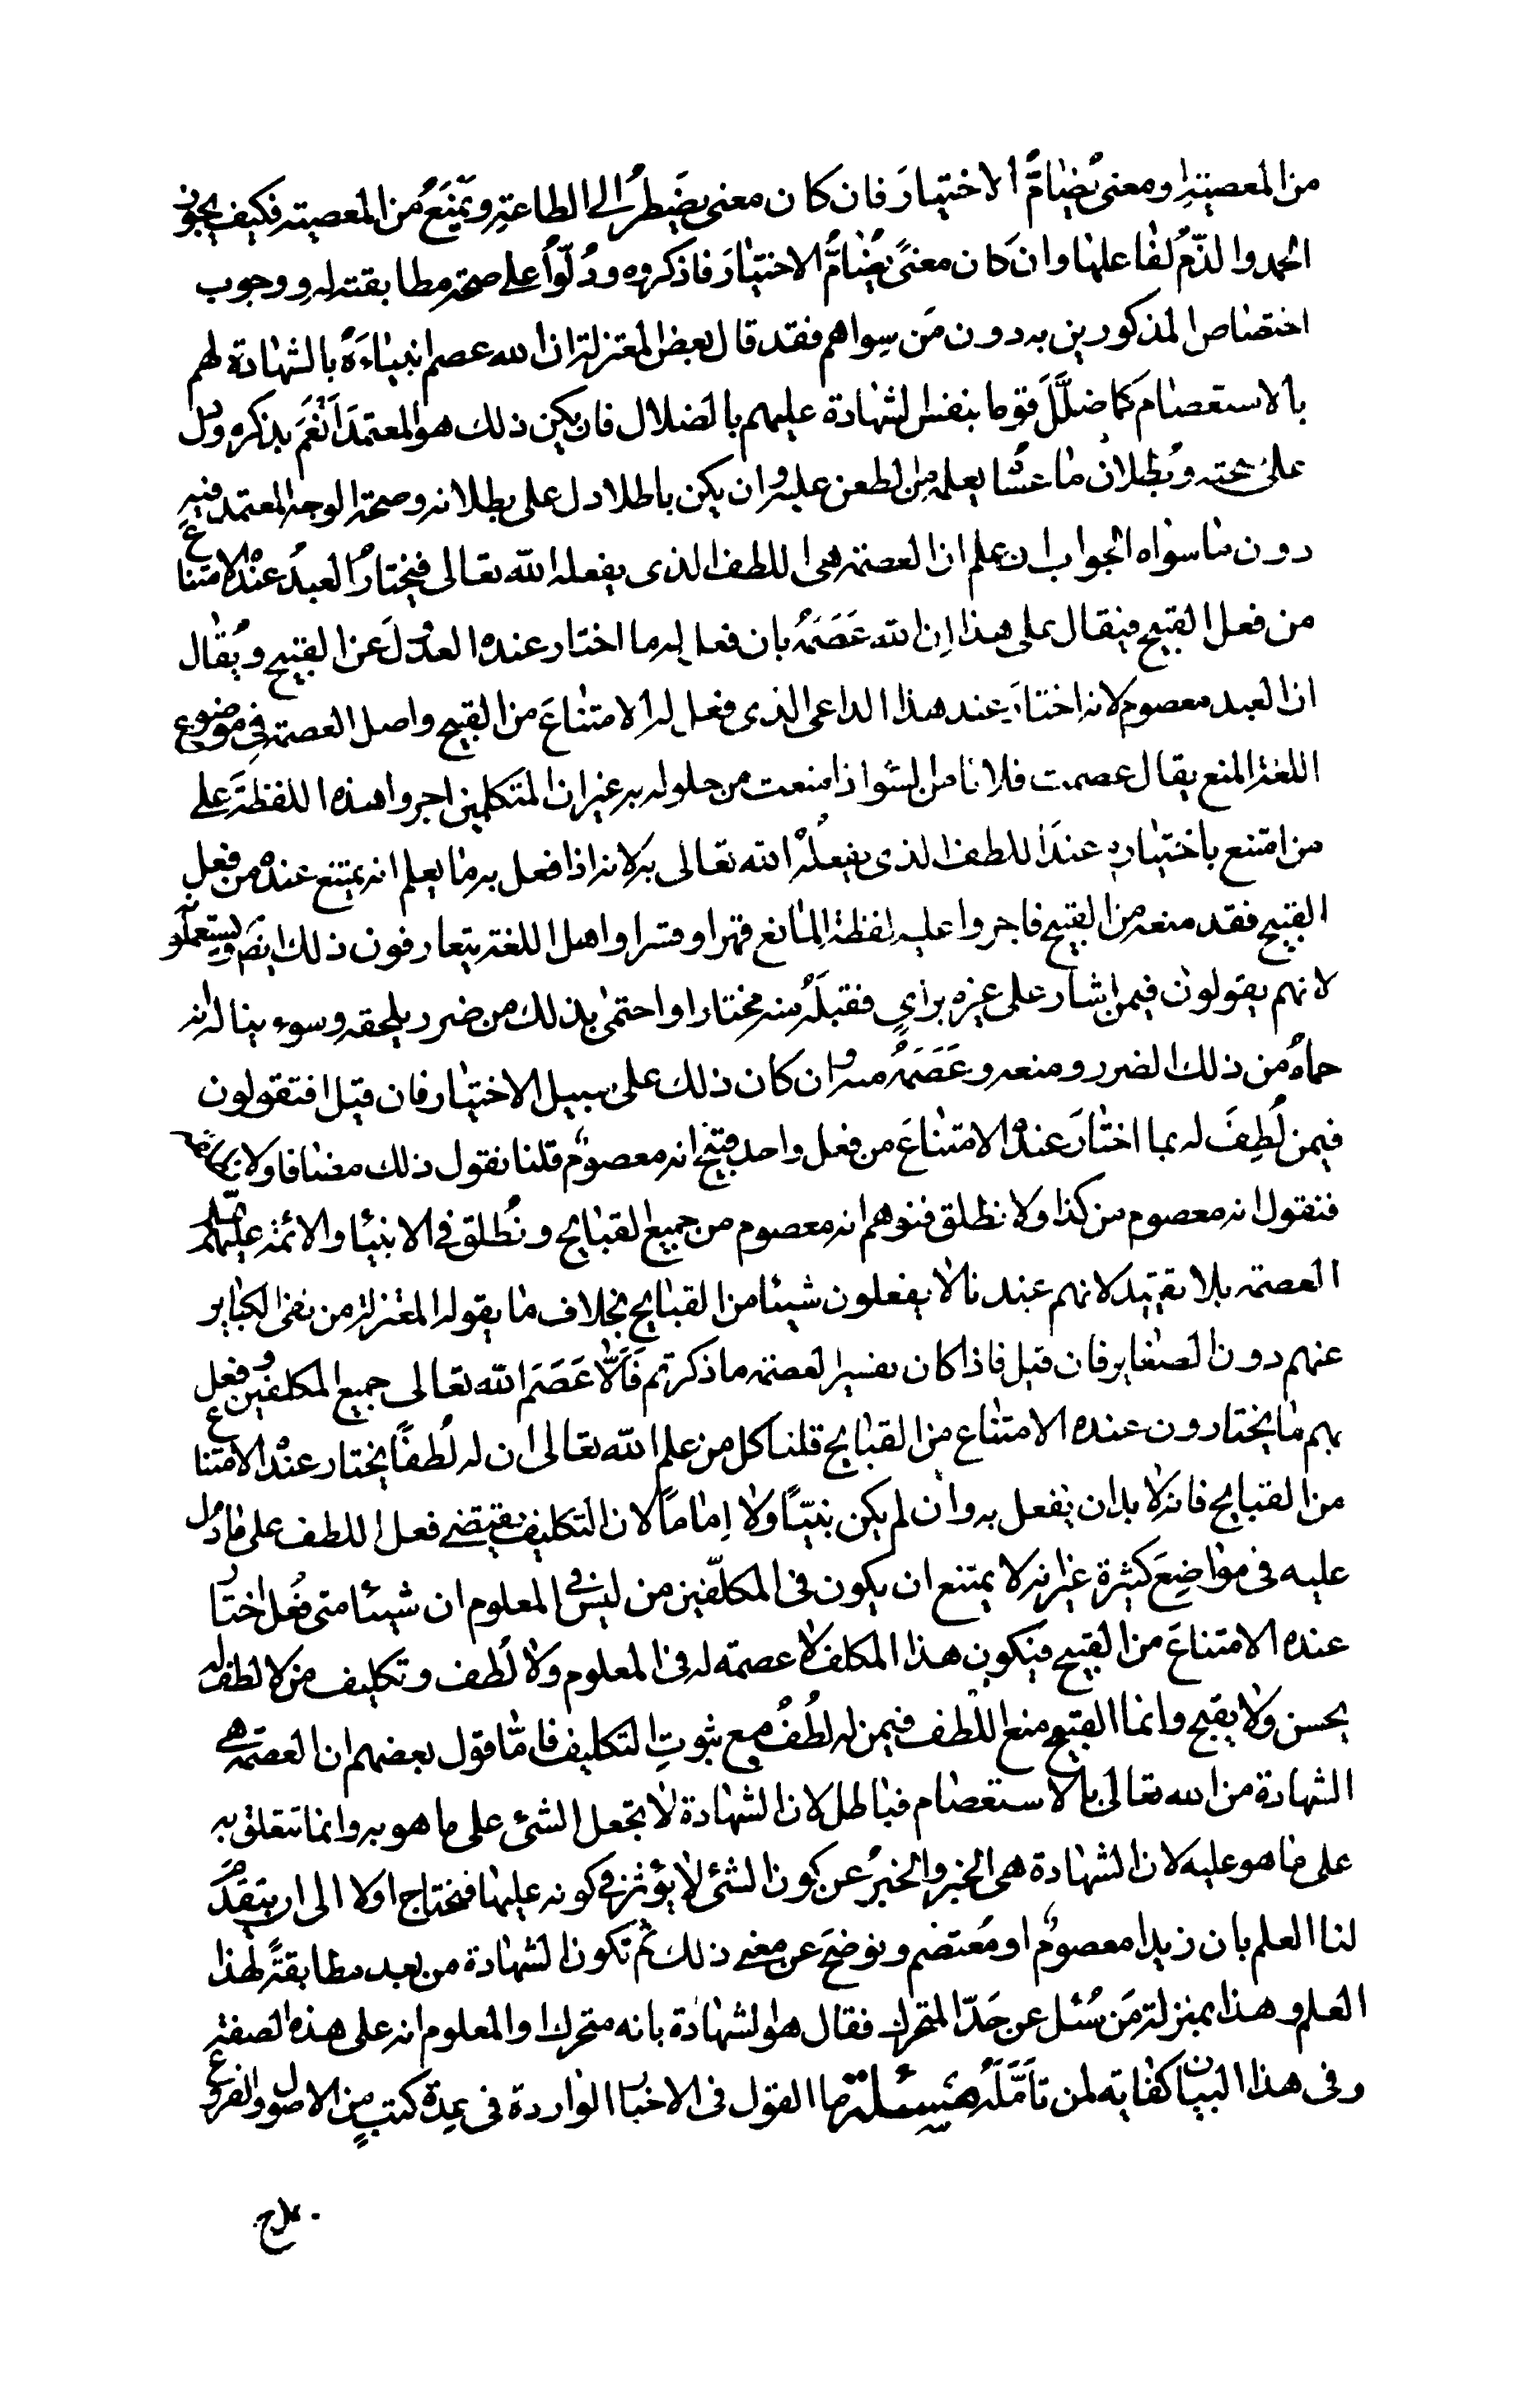 من المعصية او معنى يُضَامُّ الاختيارَ فان كان معنى يضطرُ الى الطاعةِ ويَمْنَعُ من المعصية فكيف يجوز
الحمد والذّمُ لفاعلها وان كان معنىً يُضَامُّ الاختيارَ فاذكروه ودُلّوا على صحة مطابقته له ووجوب
اختصاص المذكورين به دون مَن سِواهم فقد قال بعض المعتزلة ان الله عصم انبياءَهُ بالشهادة لهم
بالاستعصام كما ضلَّلَ قوما بنفس الشهادة عليهم بالضلال فان يكن ذلك هو المعتمد اَنْعَمَ بذكره ودل
على صحته وبُطلان ما عساه يعلمه من الطعن عليه وان يكن باطلا دل على بطلانه وصحة الوجه المعتمد فيه
دون ما سواه الجواب اعلم ان العصمة هى اللطف الذى يفعله الله تعالى فيختارُ العبدُ عنده الامتناع
من فعل القبيح فيقال على هذا اِن الله عَصَمَهُ بان فعل له ما اختار عنده العدول عن القبيح ويُقال
ان العبد معصوم لانه اختار عند هذا الداعى الذى فعل له الامتناعَ من القبيح واصل العصمة فى موضوع
اللغة المنع يقال عصمت فلانا من السّوء اذا منعت من حلوله به غير ان المتكلمين اجروا هذه اللفظةَ على
من امتنع باختيارِهِ عند اللطف الذى يفعلُهُ الله تعالى به لانه اذا فعل به ما يعلم انه يمتنع عنده من فعلِ
القبيح فقد منعه من القبيح فاجروا عليه لفظة المانع قهرا وقسرا واهل اللغة يتعارفون ذلك ايضَ ويستعملونه
لانهم يقولون فيمن اشار على غيره برأيٍ فقبلَهُ منه مختارا واحتمى بذلك من ضرر يلحقه وسوء يناله انه
حماهُ من ذلك الضرر ومنعه وعَصَمَهُ منه وان كان ذلك على سبيل الاختيار فان قيل افتقولون
فيمن لُطِفَ له بما اختارَ عنده الامتناعَ من فعل واحد قبيح انه معصومٌ قلنا نقول ذلك مضافا ولا نطلقه
فنقول انه معصوم من كذا ولا نطلق فنوهم انه معصوم من جميع القبايح ونُطلق فى الانبياء والائمة عليهم السلم
العصمة بلا تقييد لانهم عندنا لا يفعلون شيئا من القبايح بخلاف ما يقوله المعتزلة من نفى الكباير
عنهم دون الصغاير فان قيل فاذا كان تفسير العصمة ما ذكرتم فَاَلَّا عَصَمَ الله تعالى جميع المكلفين وفعل
بهم ما يختارون عنده الامتناع من القبايح قلنا كل من علم الله تعالى ان له لُطفًا يختار عنده الامتناع
من القبايح فانه لا بد ان يفعل به وان لم يكن نبيّاً ولا اِماماً لان التكليف يقتضى فعل اللطف على ما دُل
عليه فى مواضِعَ كثيرة غير انه لا يمتنع ان يكون فى المكلّفين من ليس فى المعلوم ان شيئا متى فُعل اختار
عنده الامتناعَ من القبيح فيكون هذا المكلف لا عصمة له فى المعلوم ولا لُطف وتكليف من لا لطف له
يحسن ولا يقبح وانما القبيح منع اللّطف فيمن له لُطفٌ مع ثبوتِ التكليف فامّا قول بعضهم ان العصمة هى
الشهادة من الله تعالى بالاستعصام فباطل لان الشهادة لا تجعل الشئ على ما هو به وانما تتعلق به
على ما هو عليه لان الشهادة هى الخبر والخبرُ عن كون الشئ لا يؤثر فى كونه عليها فنحتاج اولا الى ان يتقدّمَ
لنا العلم بان زيدا معصومٌ او مُعتصم ونوضحَ عن معنى ذلك ثم تكون الشهادة من بعد مطابقةً لهذا
العلم وهذا بمنزلة مَن سُئل عن حَدّ المتحرك فقال هو الشهادة بانه متحرك او المعلوم انه على هذه الصفة
وفى هذا البيان كفاية لمن تاَمَّلَهُ مسئلة ما القول فى الاخبار الواردة فى عِدة كتبٍ من الاصول والفروع